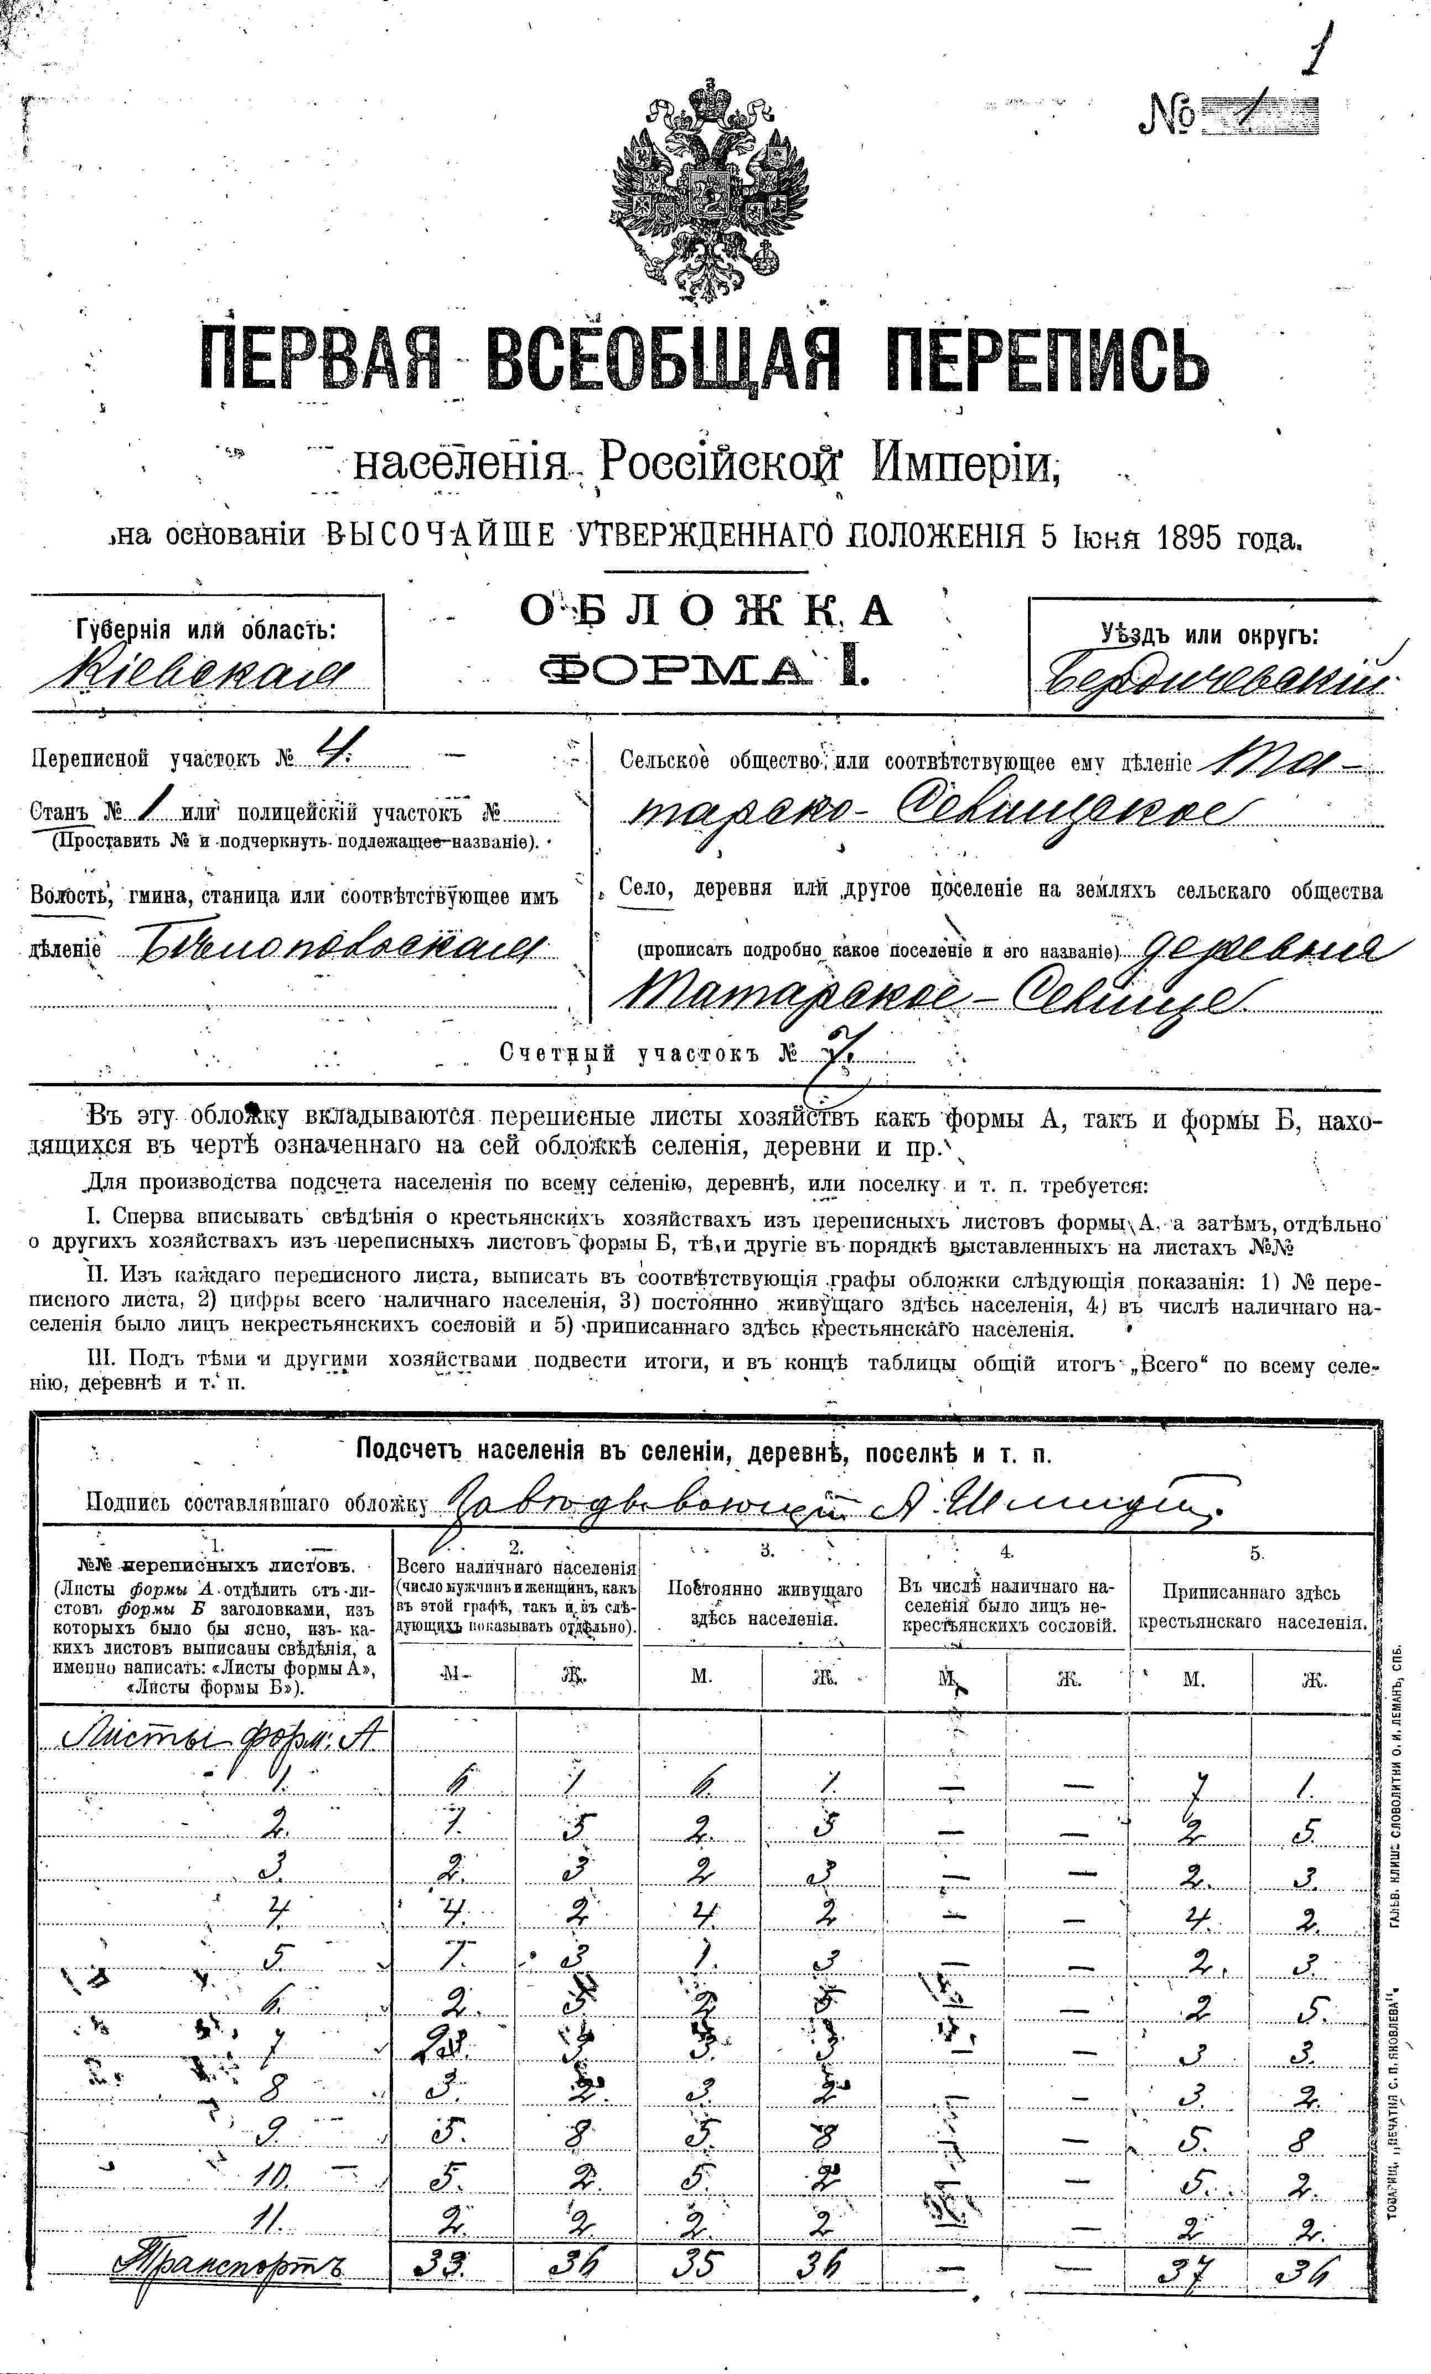 1
№ 1
ПЕРВАЯ ВСЕОБЩАЯ ПЕРЕПИСЬ
населенія Россійской Имперіи,
на основаніи ВЫСОЧАЙШЕ УТВЕРЖДЕННАГО ПОЛОЖЕНІЯ 5 Іюня 1895 года.
ОБЛОЖКА
ФОРМА I.
Губернія или область:
Кіевская
Уѣздъ или округъ:
Бердичевскій
Переписной участокъ № 4.
Станъ № 1 или полицейскій участокъ №
(Проставить № и подчеркнуть подлежащее названіе).
Волость, гмина, станица или соотвѣтствующее имъ
дѣленіе Бѣлопольская
Сельское общество или соотвѣтствующее ему дѣленіе Та-
тарско-Селищское
Село, деревня или другое поселеніе на земляхъ сельскаго общества
(прописать подробно какое поселеніе и его названіе) деревня
Татарское-Селище
Счетный участокъ № 7.
Въ эту обложку вкладываются переписные листы хозяйствъ какъ формы А, такъ и формы Б, нахо-
дящихся въ чертѣ означеннаго на сей обложкѣ селенія, деревни и пр.
Для производства подсчета населенія по всему селенію, деревнѣ, или поселку и т. п. требуется:
I. Сперва вписывать свѣдѣнія о крестьянскихъ хозяйствахъ изъ переписныхъ листовъ формы А, а затѣмъ, отдѣльно
о другихъ хозяйствахъ изъ переписныхъ листовъ формы Б, тѣ и другіе въ порядкѣ выставленныхъ на листахъ №№
II. Изъ каждаго переписного листа, выписать въ соотвѣтствующія графы обложки слѣдующія показанія: 1) № пере-
писного листа, 2) цифры всего наличнаго населенія, 3) постоянно живущаго здѣсь населенія, 4) въ числѣ наличнаго на-
селенія было лицъ некрестьянскихъ сословій и 5) приписаннаго здѣсь крестьянскаго населенія.
III. Подъ тѣми и другими хозяйствами подвести итоги, и въ концѣ таблицы общій итогъ „Всего“ по всему селе-
нію, деревнѣ и т. п.
Подсчетъ населенія въ селеніи, деревнѣ, поселкѣ и т. п.
Подпись составлявшаго обложку Завѣдывающій А. Шмидт.
1.
№№ переписныхъ листовъ.
(Листы формы А отдѣлить отъ ли-
стовъ формы Б заголовками, изъ
которыхъ было бы ясно, изъ ка-
кихъ листовъ выписаны свѣдѣнія, а
именно написать: «Листы формы А»,
«Листы формы Б»).
2.
Всего наличнаго населенія
(число мужчинъ и женщинъ, какъ
въ этой графѣ, такъ и въ слѣ-
дующихъ показывать отдѣльно).
3.
Постоянно живущаго
здѣсь населенія.
4.
Въ числѣ наличнаго на-
селенія было лицъ не-
крестьянскихъ сословій.
5.
Приписаннаго здѣсь
крестьянскаго населенія.
М. Ж. М. Ж. М. Ж. М. Ж.
Листы форм: А
1. 6 1 6. 1. — — 7 1.
2. 1. 5 2. 5 — — 2 5.
3. 2. 3 2 3 — — 2. 3.
4. 4. 2 4. 2 — — 4. 2.
5. 1. 3 1. 3 — — 2. 3.
6. 2. 5 2 5 — — 2 5.
7 2. 3 3. 3 — — 3 3.
8 3. 2. 3. 2 — — 3. 2.
9. 5. 8 5. 8 — — 5. 8
10. 5. 2. 5. 2 — — 5. 2.
11. 2. 2. 2. 2 — — 2 2.
Транспортъ 33. 36 35 36 — — 37 36
ГАЛЬВ. КЛИШЕ СЛОВОЛИТНИ О. И. ЛЕМАНЪ, СПБ.
ТОВАРИЩ. „ПЕЧАТНЯ С. П. ЯКОВЛЕВА“.